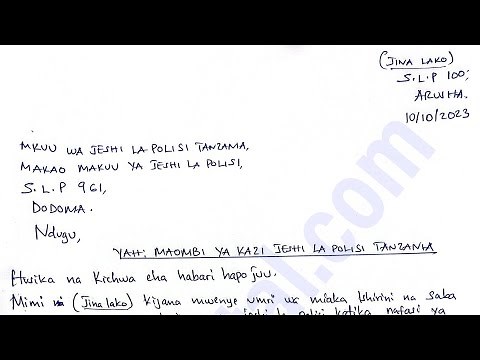 (JINA LAKO)
S.L.P 100,
ARUSHA.
10/10/2023
MKUU WA JESHI LA POLISI TANZANIA,
MAKAO MAKUU YA JESHI LA POLISI,
S.L.P 961,
DODOMA.
Ndugu,
YAH: MAOMBI YA KAZI JESHI LA POLISI TANZANIA
Husika na Kichwa cha habari hapo juu.
Mimi ni (Jina lako) kijana mwenye umri wa miaka Ishirini na saba
jeshi la polisi katika nafasi ya